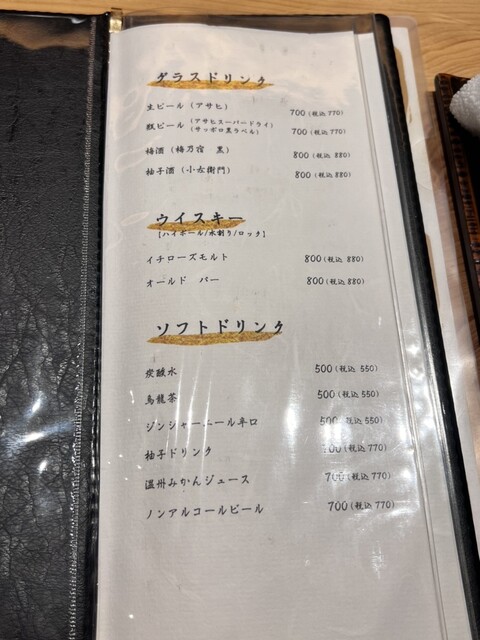 グラスドリンク
生ビール（アサヒ） 700（税込 770）
瓶ビール（アサヒスーパードライ）（サッポロ黒ラベル） 700（税込 770）
梅酒（梅乃宿 黒） 800（税込 880）
柚子酒（小左衛門） 800（税込 880）
ウイスキー
【ハイボール/水割り/ロック】
イチローズモルト 800（税込 880）
オールド パー 800（税込 880）
ソフトドリンク
炭酸水 500（税込 550）
烏龍茶 500（税込 550）
ジンジャーエール辛口 500（税込 550）
柚子ドリンク 700（税込 770）
温州みかんジュース 700（税込 770）
ノンアルコールビール 700（税込 770）